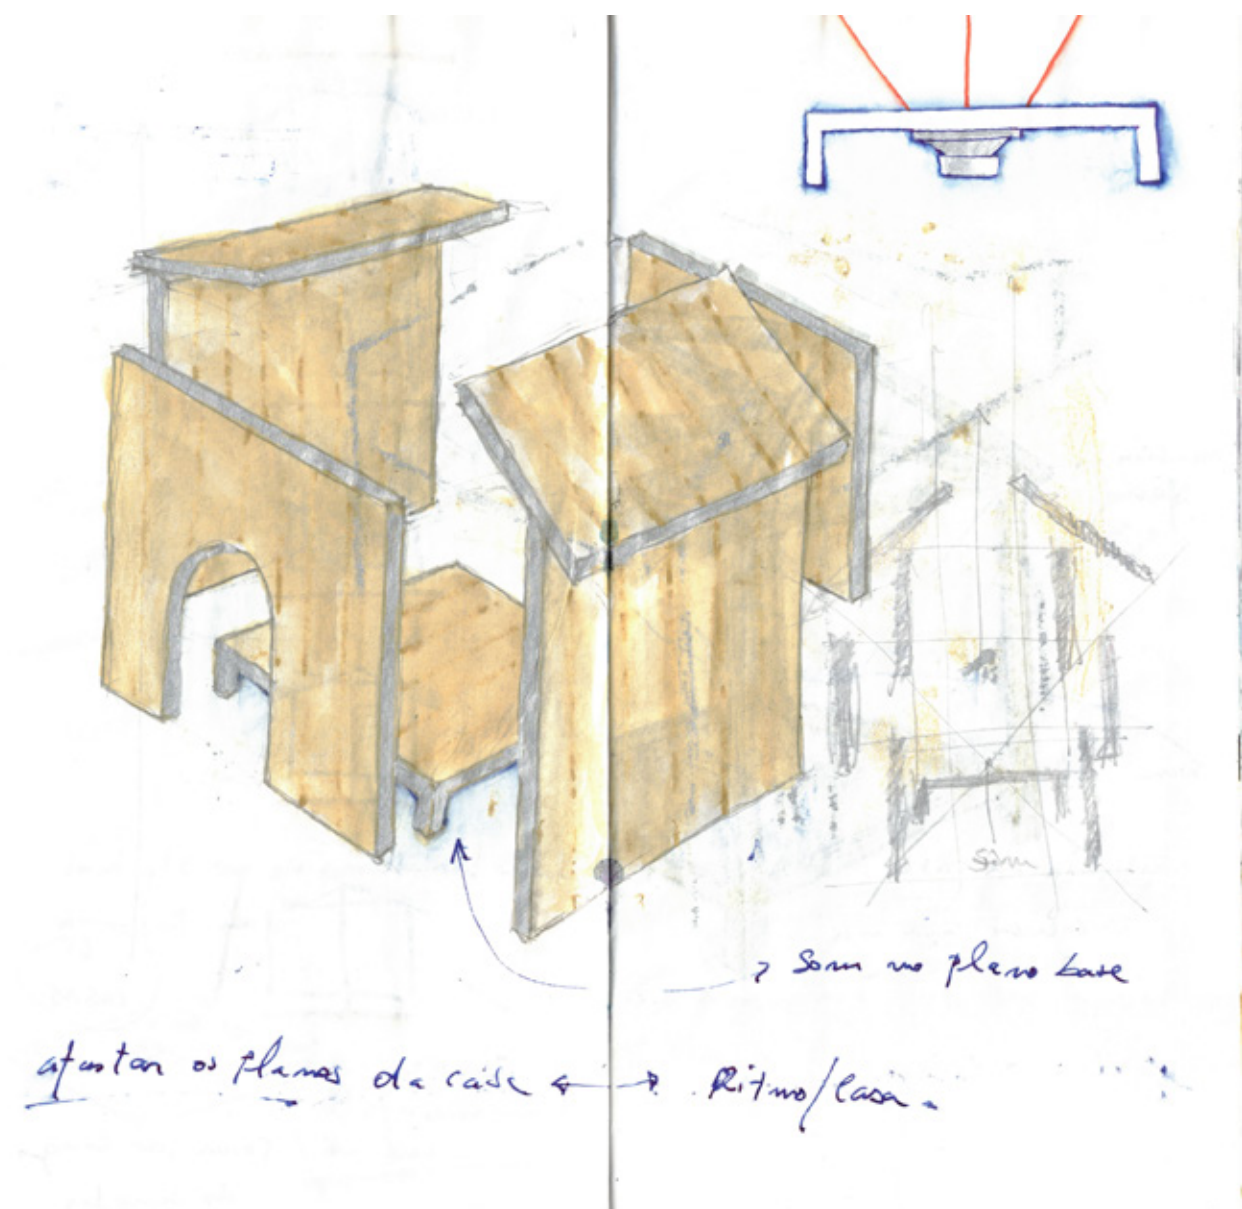 Som
som no plano base
afastar os planos da casa ↔ Ritmo/Casa.